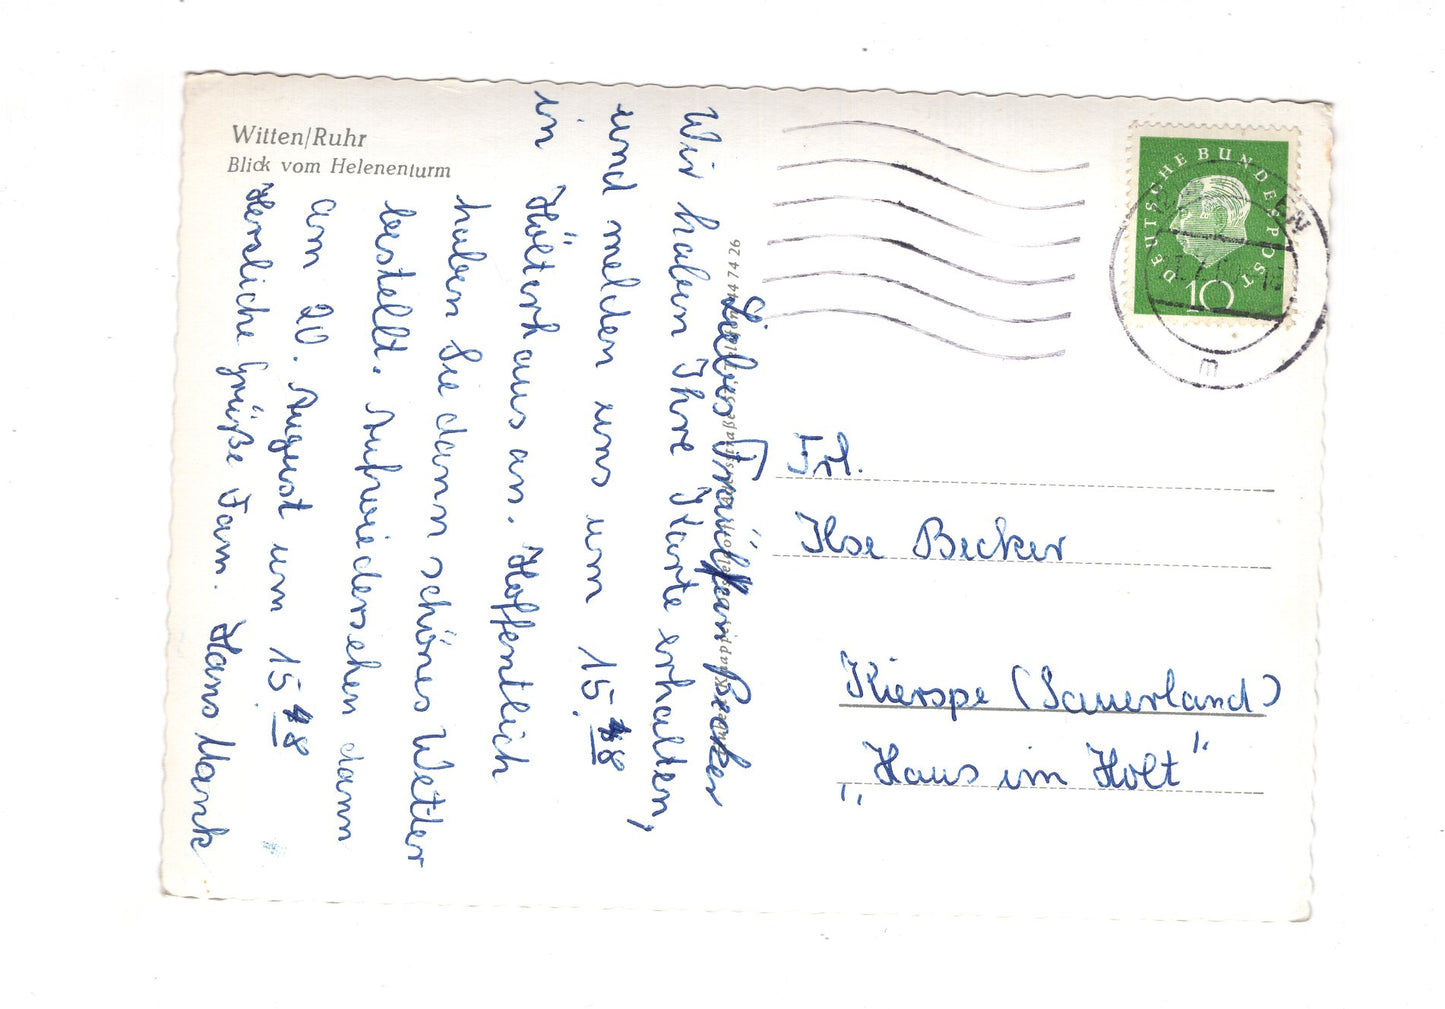 Witten/Ruhr
Blick vom Helenenturm
Liebes Fräulein Becker
Wir haben Ihre Karte erhalten,
und melden uns um 15. 8
in
Hölterhaus an. Hoffentlich
haben Sie dann schönes Wetter
bestellt. Aufwiedersehen dann
am 20. August um 15. 8
Herzliche Grüße Fam. Hans Mank
44 74 26
DEUTSCHE BUNDESPOST
10
EN
m
Frl.
Ilse Becker
Kierspe (Sauerland)
„Haus im Holt"